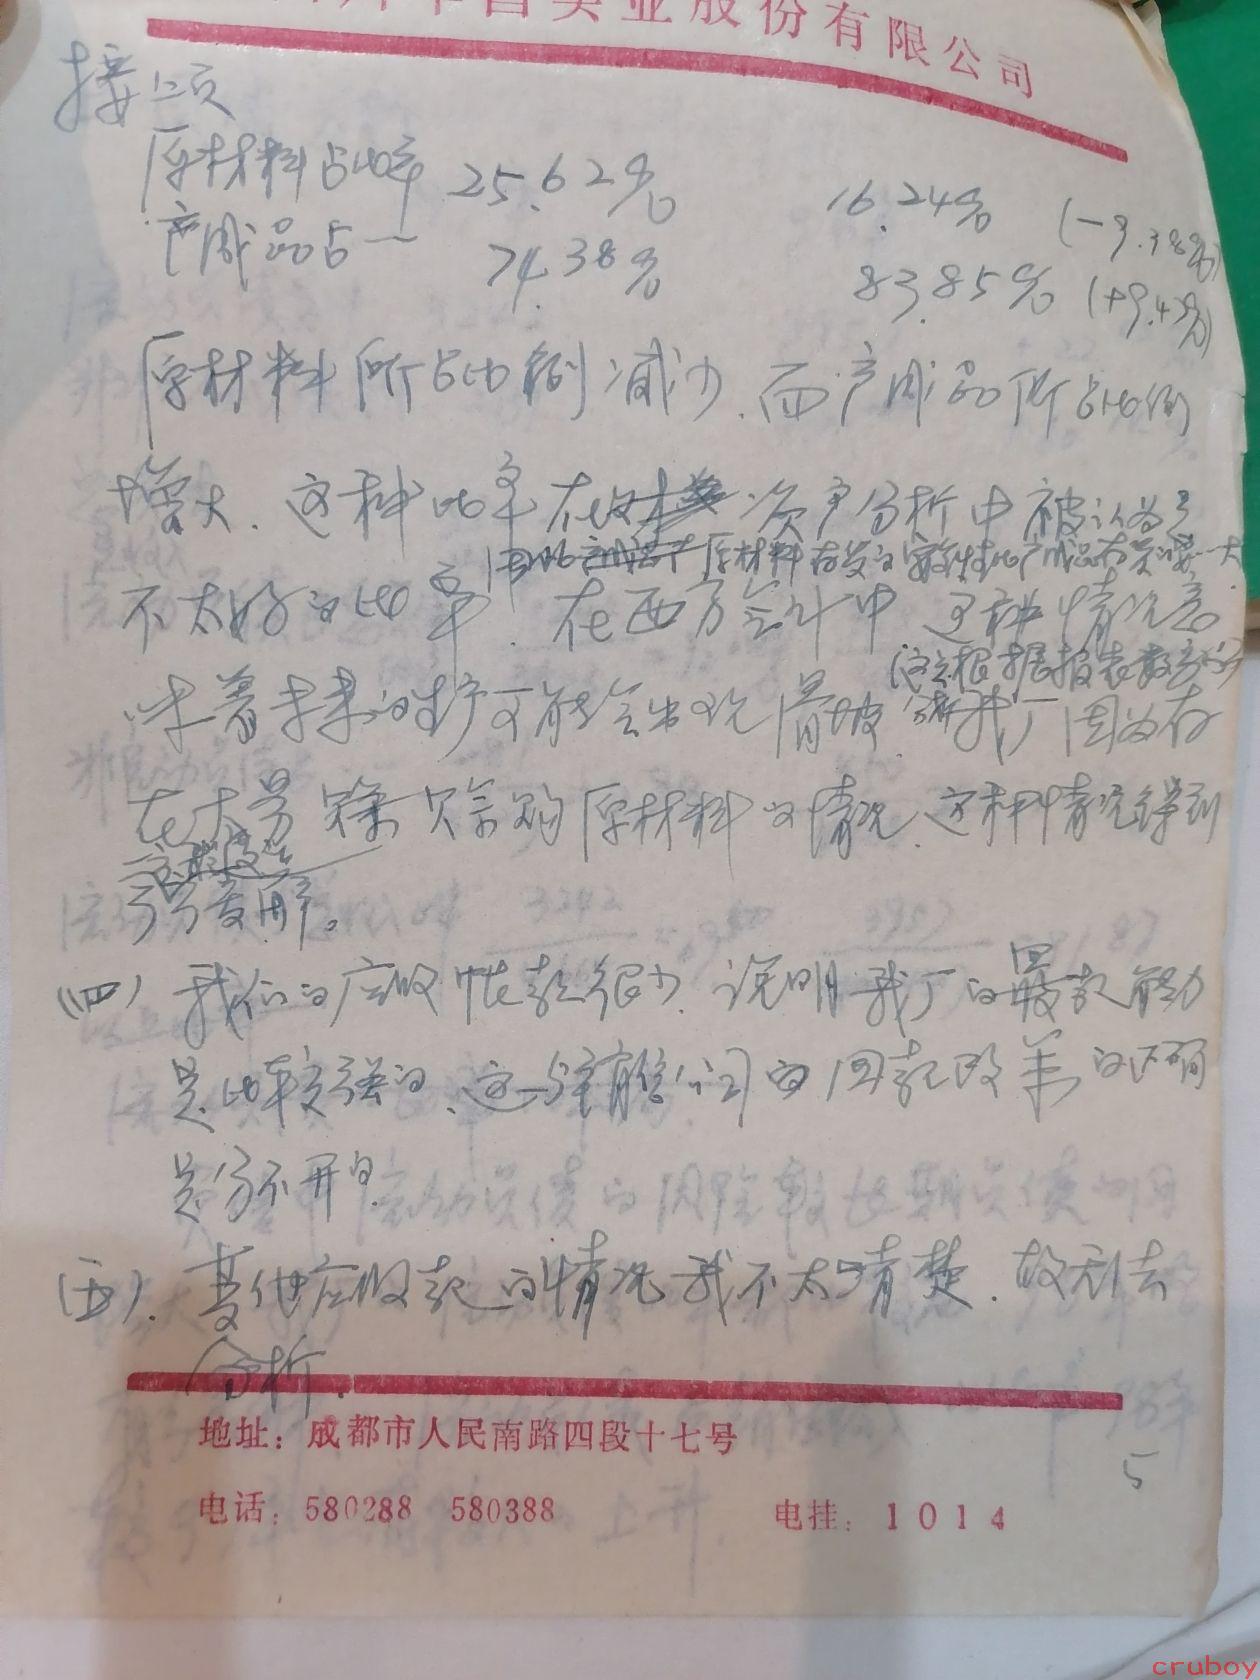 实业股份有限公司
接上页
原材料占比率 25.62% 16.24% (-9.38%)
产成品占一 74.38% 83.85% (+9.47%)
原材料所占比例减少,而产成品所占比例
增大.这种比率在资产分析中被认为是
原材料存货的变现性比产成品存货要大
不太好的比率.在西方会计中这种情况意
(这是根据报表数字
味着未来的生产可能会出现滑坡.我厂因为存
在大号赊购原材料的情况.这种情况得到
了缓解。
(四)我们的应收帐款很少.说明我厂的回款能力
是比较强的.这与销售公司的回款政策的正确
是分不开的.
(五).其他应收款的情况我不太清楚.故无法
分析.
地址:成都市人民南路四段十七号
5
电话:580288 580388 电挂:1014
cruboy